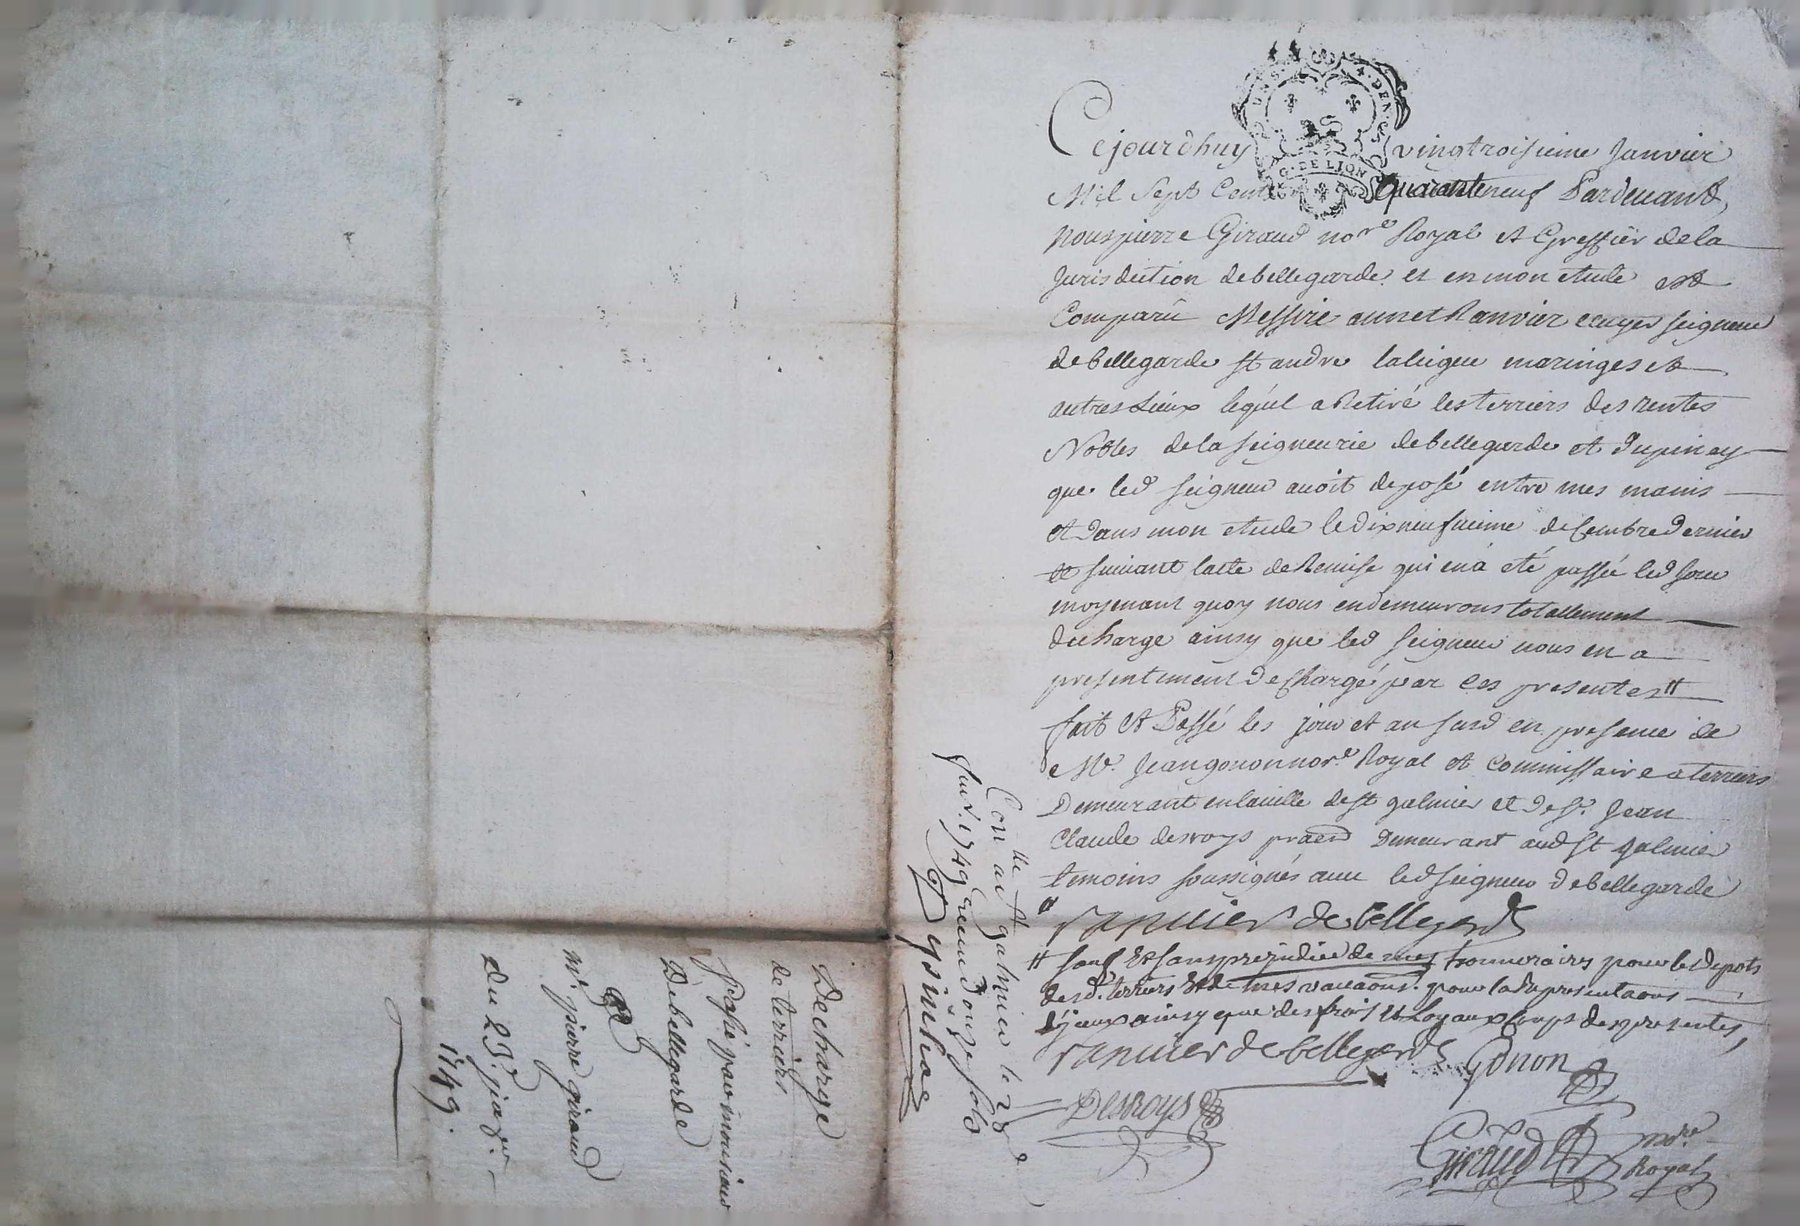 UN S. & DEN. S
G. DE LION
Cejourdhuy vingtroisieme Janvier
Mil Sept Cent quaranteneuf Pardeuant
nous pierre Giraud nore Royal et Greffier dela
Jurisdiction debellegarde et en mon etude est
Comparû Messire annet Ranvier ecuyer seigneur
debellegarde st andre maringes et
autres Lieux lequel a Retiré les terriers des rentes
Nobles dela seigneurie debellegarde et dupiney
que led seigneur auoit deposé entre mes mains
et dans mon etude le dixneufuieme decembre dernier
et suiuant lacte de Remise qui en a eté passée led Jour
moyenant quoy nous endemeurons totallement
decharge ainsy que led seigneur nous en a
presentement dechargé par ces presentes #
fait et Passé les jour et an susd en presence de
Me. Jean gonon nore. Royal et Commissaire a terriers
Demeurant enlauille de st galmier et de sr. Jean
Claude desroys demeurant aud st galmier
temoins soussignés auec led seigneur debellegarde
# ranuier de bellegarde
# sauf et sans prejudice de mes honneraires pour led depots
desd. terriers et de mes vacaons. pour la Representaons
diceux ainsy que des frais et Loyaux Coups des presentes,
ranuier de bellegarde Gonon
Desroys
Giraud nore
Royal
Con a St galmier le 28
Janv. 1749 Receu douze sols
Decharge
de terriers
Passé par monsieur
Debellegarde
a
me. pierre giraud
Du 23e janer.
1749.